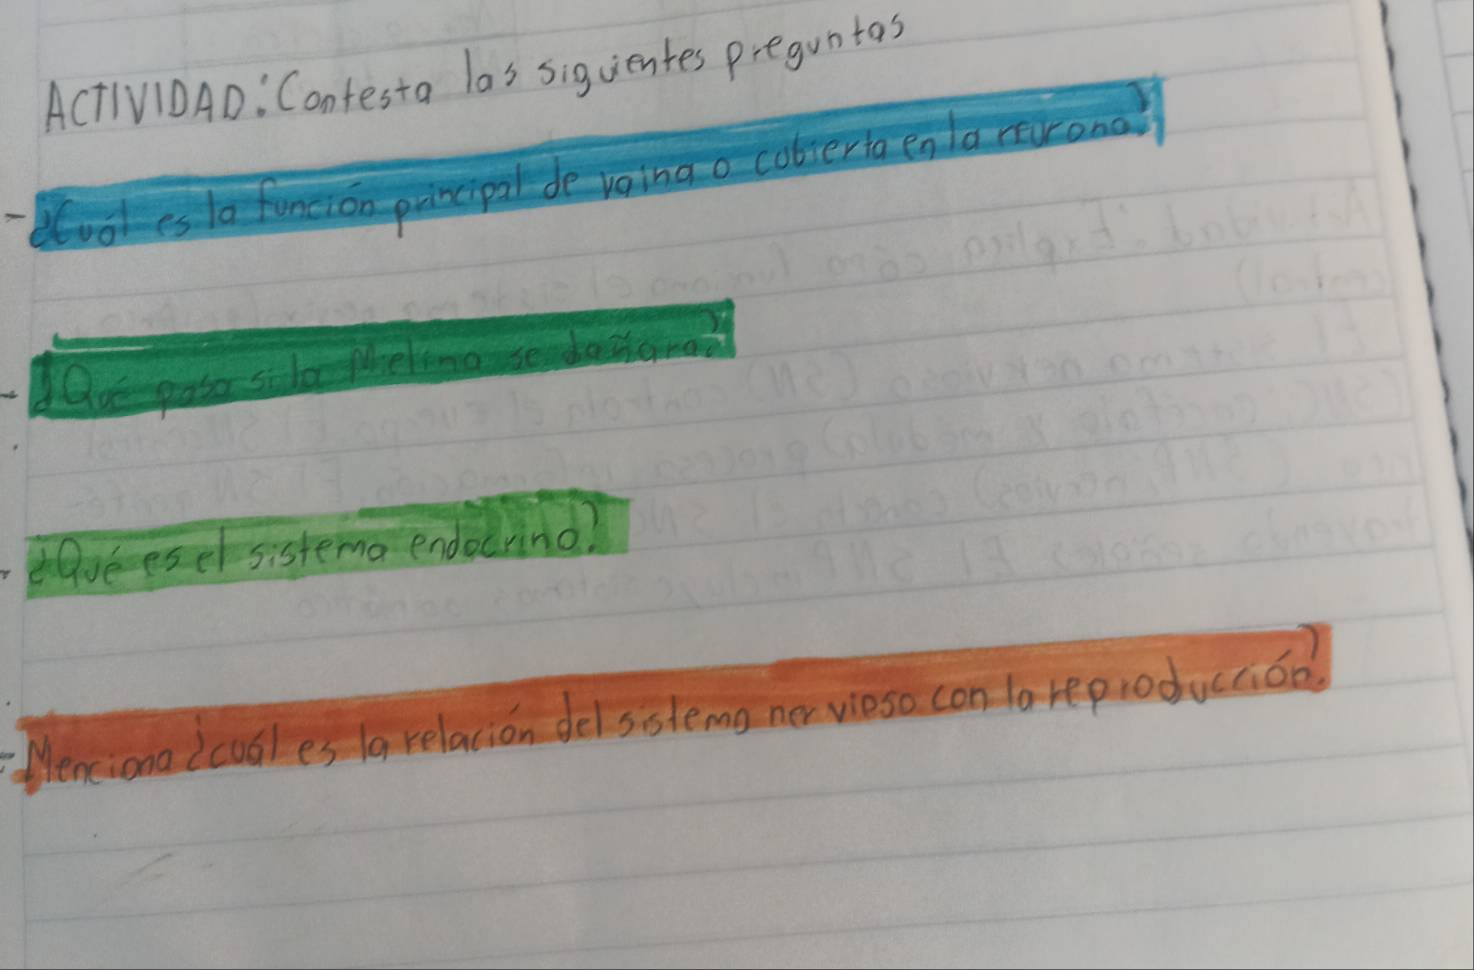 ACTIVIDAD: Contesta las siguientes preguntas
- ¿Cuál es la función principal de vaina o cubierta en la neurona?
- ¿Qué pasa si la Mielina se dañara?
- ¿Qué es el sistema endocrino?
- Menciona ¿cuál es la relación del sistema nervioso con la reproducción?